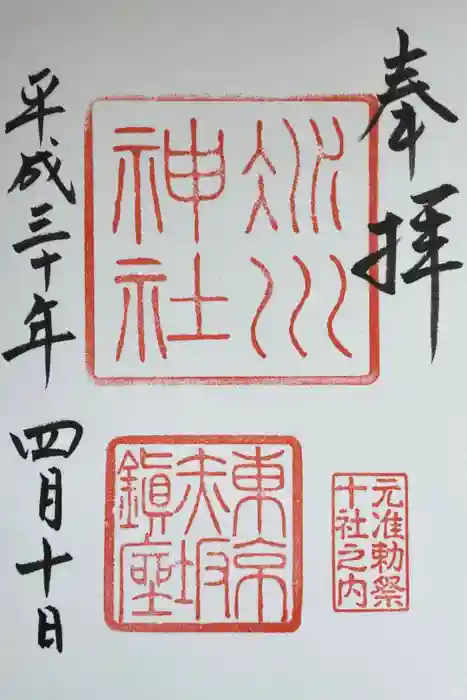 奉拝
氷川
神社
東京
赤坂
鎮座
元准勅祭
十社之内
平成三十年 四月十日